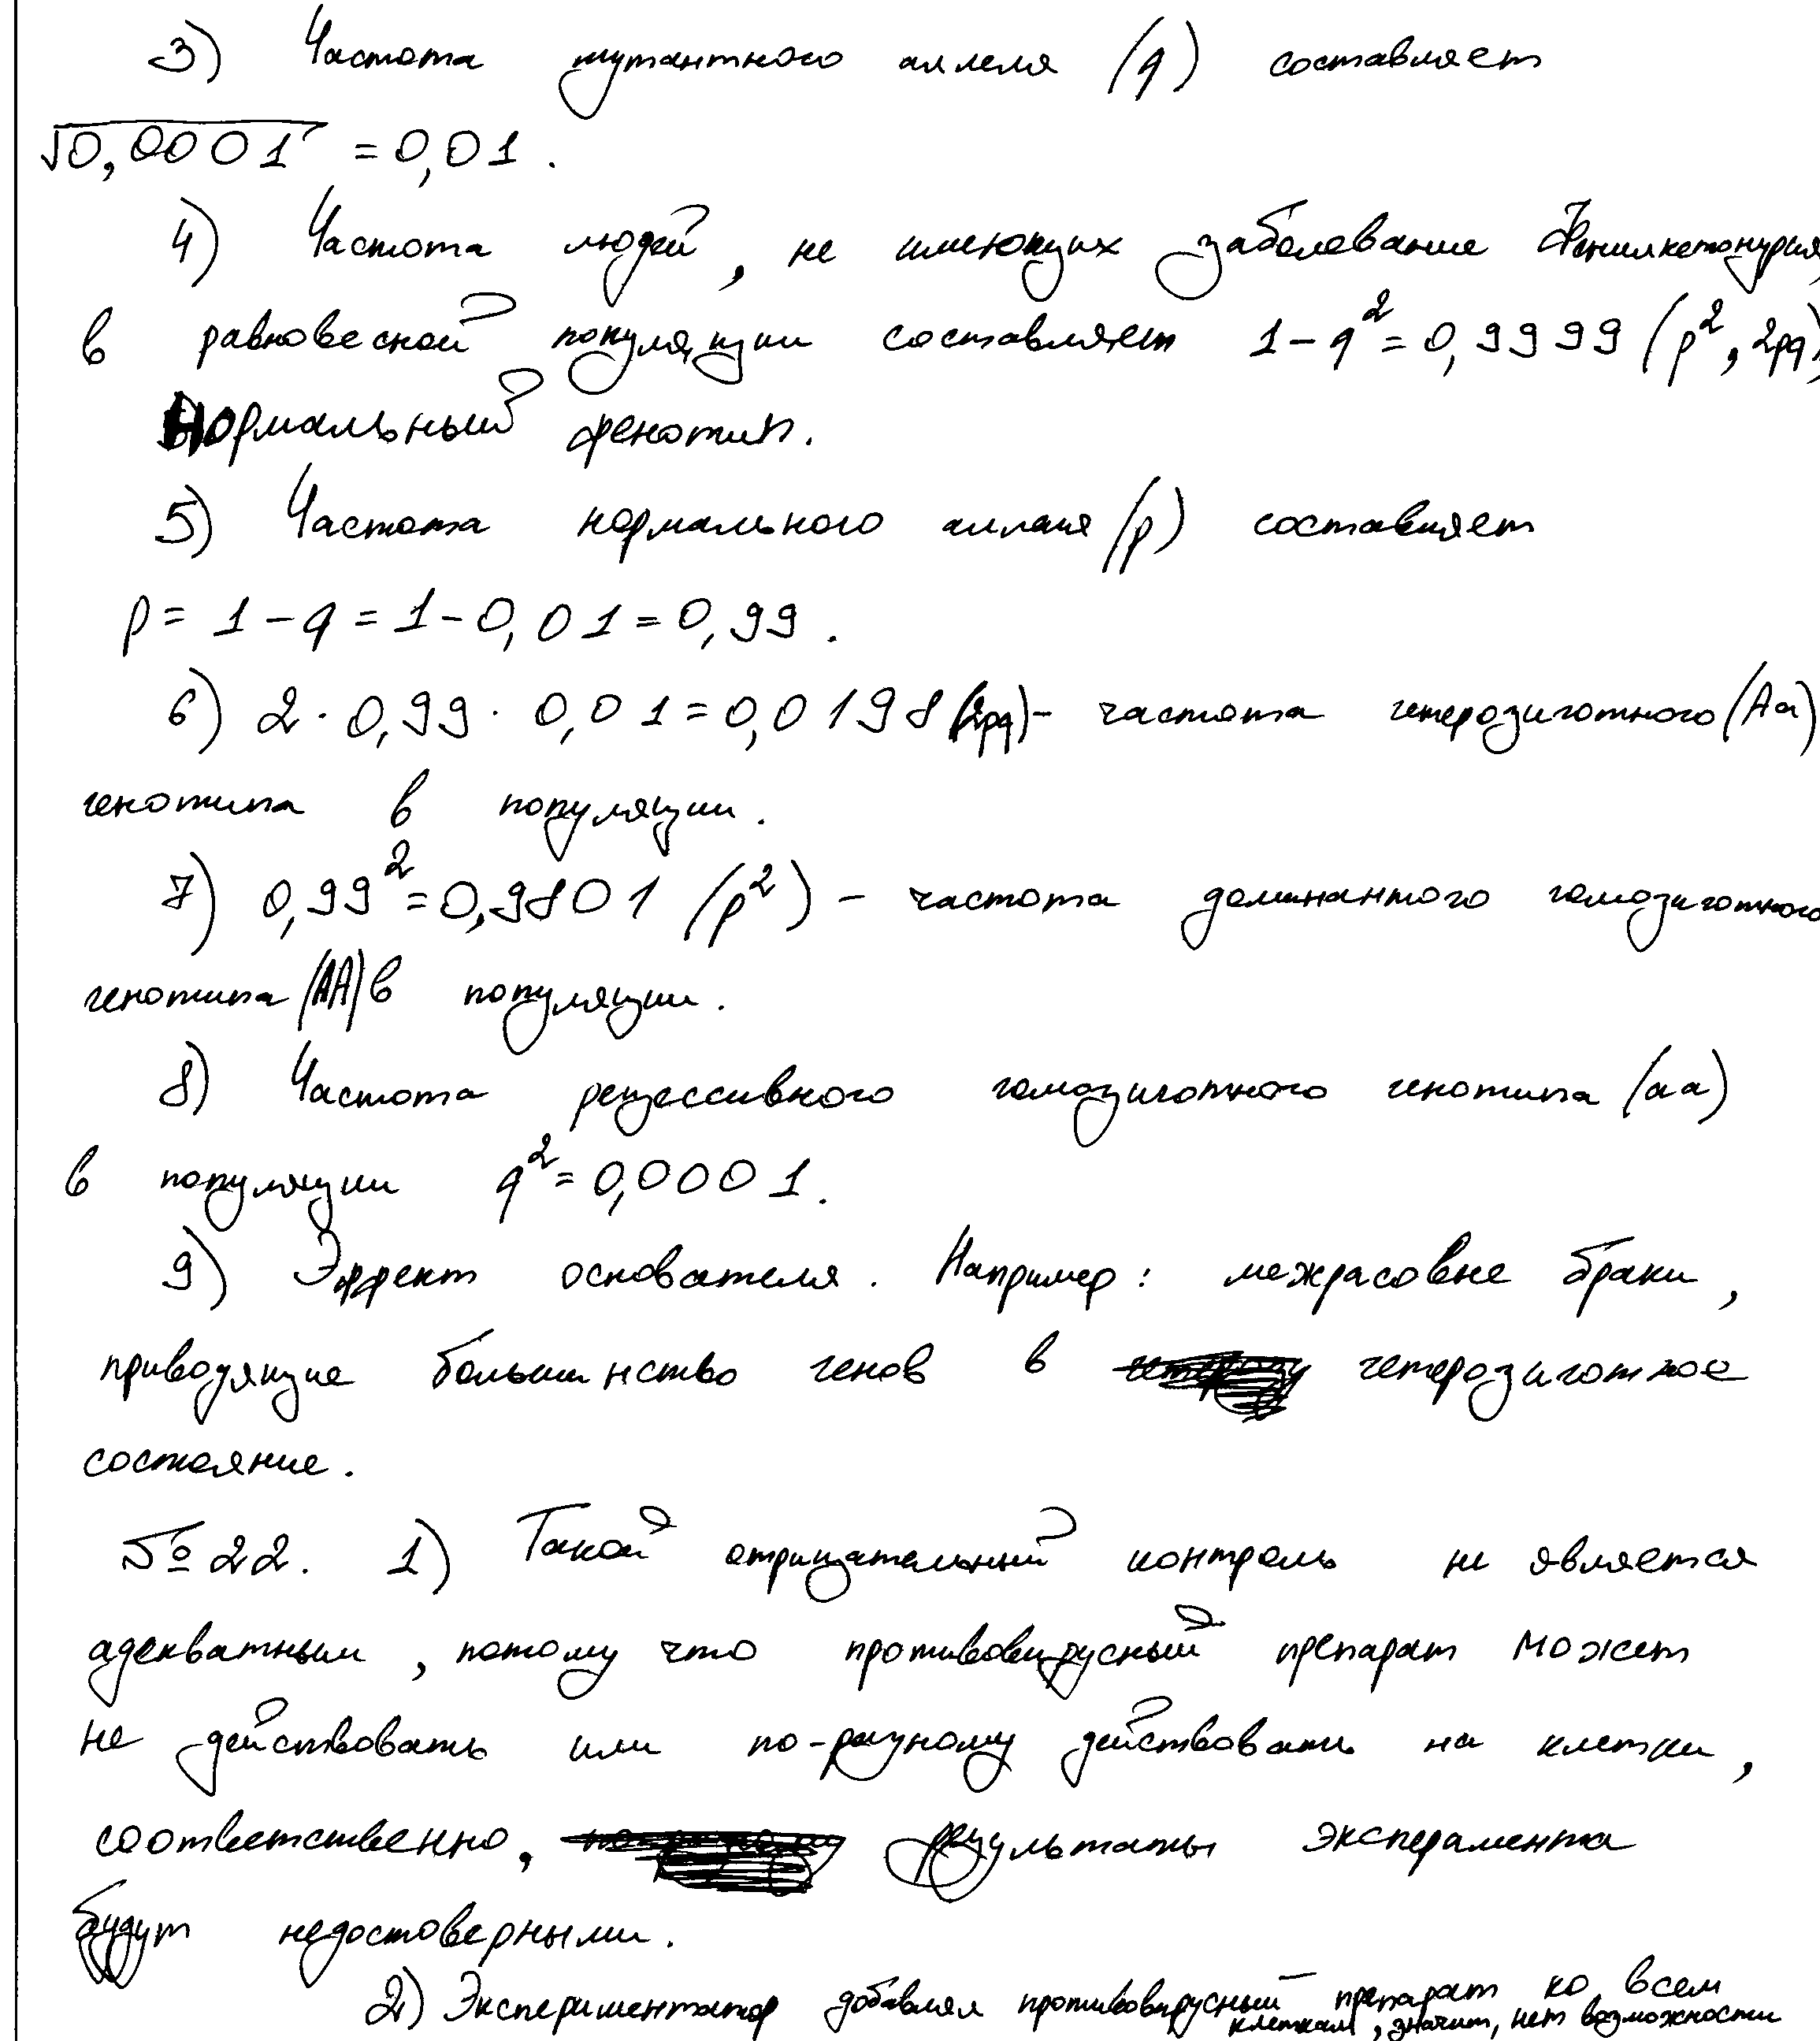 3) Частота мутантного аллеля (q) составляет
√0,0001 = 0,01.
4) Частота людей, не имеющих заболевание Фенилкетонурия,
в равновесной популяции составляет 1-q²=0,9999 (p², 2pq),
Нормальный фенотип.
5) Частота нормального аллеля (p) составляет
p = 1-q = 1-0,01 = 0,99.
6) 2·0,99·0,01=0,0198 (2pq) - частота гетерозиготного (Aa)
генотипа в популяции.
7) 0,99²=0,9801 (p²) - частота доминантого гомозиготного
генотипа (AA) в популяции.
8) Частота рецессивного гомозиготного генотипа (aa)
в популяции q²=0,0001.
9) Эффект основателя. Например: межрасовые браки,
приводящие большинство генов в гетерозиготное
состояние.
№22. 1) Такой отрицательный контроль не является
адекватным, потому что противовирусный препарат может
не действовать или по-разному действовать на клетки,
соответственно, результаты эксперамента
будут недостоверными.
2) Экспериментатор добавлял противовирусный препарат ко всем
клеткам, значит, нет возможности